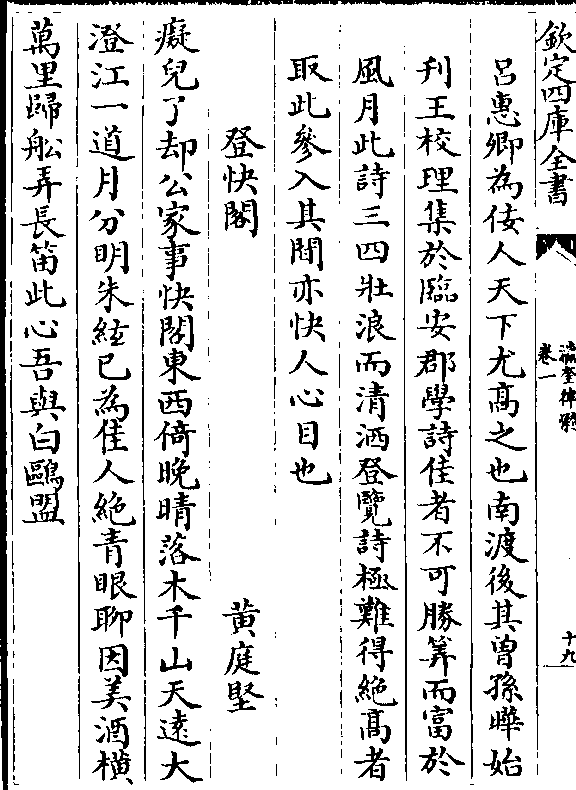 欽定四庫全書
瀛奎律髓
卷一
十九
呂惠卿為佞人天下尤髙之也南渡後其曽孫曄始
刋王校理集於臨安郡學詩佳者不可勝筭而富於
風月此詩三四壯浪而清洒登覽詩極難得絶髙者
取此參入其間亦快人心目也
登快閣　黄庭堅
癡兒了却公家事快閣東西倚晚晴落木千山天逺大
澄江一道月分明朱絃已為佳人絶青眼聊因美酒橫
萬里歸舩弄長笛此心吾與白鷗盟